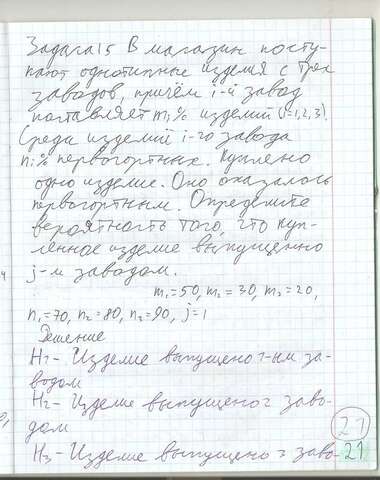 Задача15 В магазин посту-
пают однотипные изделия с трех
заводов, причём i-й завод
поставляет mi% изделий (i=1,2,3).
Среди изделий i-го завода
ni% первосортных. Куплено
одно изделие. Оно оказалось
первосортным. Определите
вероятность того, что куп-
ленное изделие выпущенно
j-м заводом.
m1=50, m2=30, m3=20,
n1=70, n2=80, n3=90, j=1
Решение
H1- Изделие выпущено 1-ым за-
водом
H2- Изделие выпущено 2 заво-
дом
H3- Изделие выпущено 3 заво-
21
21